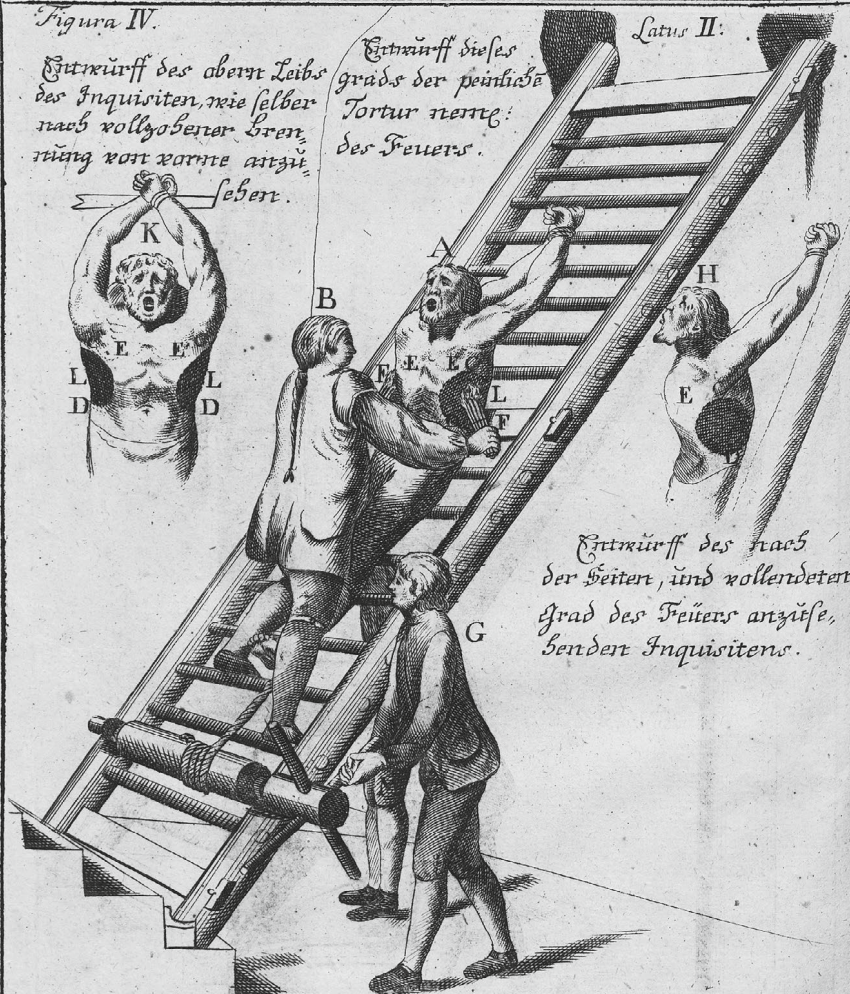 Figura IV.
Latus II:
Entwurff des obern Leibs
des Inquisiten, wie selber
nach vollzohener Bren=
nung von vorne anzu=
sehen.
Entwurff dieses
grads der peinlichē
Tortur neml:
des Feuers.
K
E E
L L
D D
B
A
F E E C
L
F
H
E
G
Entwurff des nach
der Seiten, und vollendeten
Grad des Feüers anzuse=
henden Inquisitens.